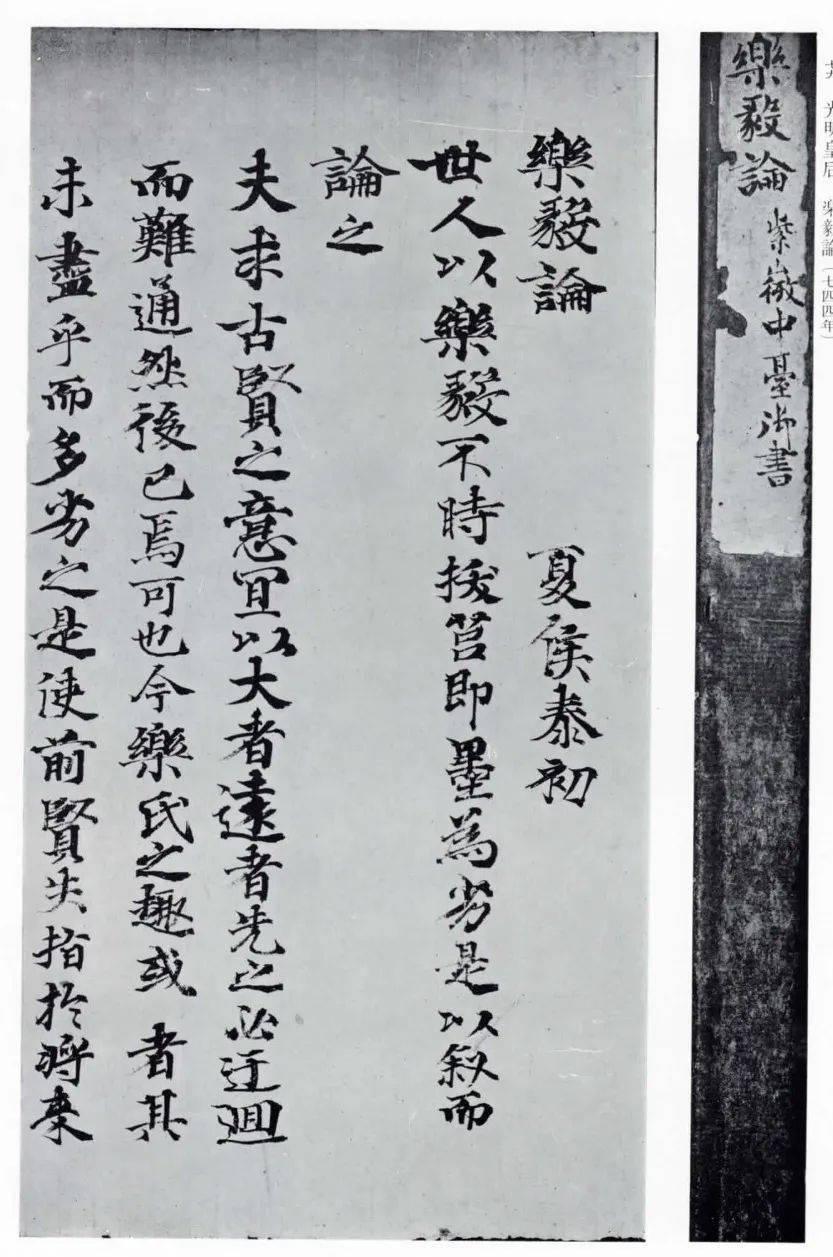 光明皇后 楽毅論(七四四年)
樂毅論 紫微中臺御書
樂毅論 夏侯泰初
世人以樂毅不時拔莒即墨為劣是以叙而
論之
夫求古賢之意宜以大者遠者先之必迂迴
而難通然後已焉可也今樂氏之趣或者其
未盡乎而多劣之是使前賢失指於將來